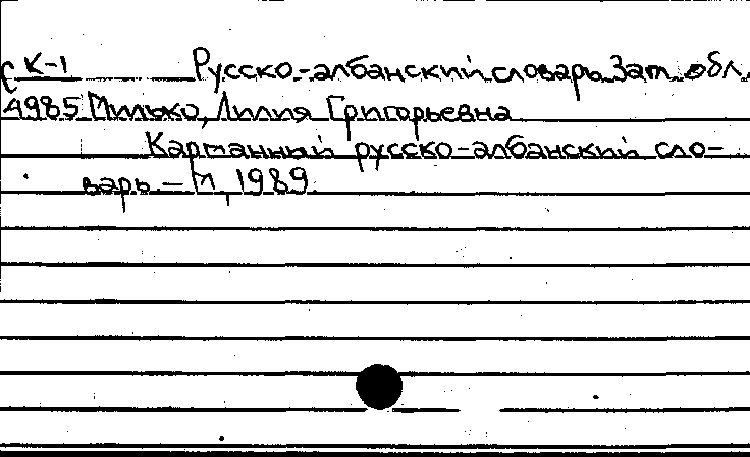 К-1 Русско-албанский словарь. Заг. обл.
4985 Милько, Лилия Григорьевна
Карманный русско-албанский сло-
варь. – М, 1989.